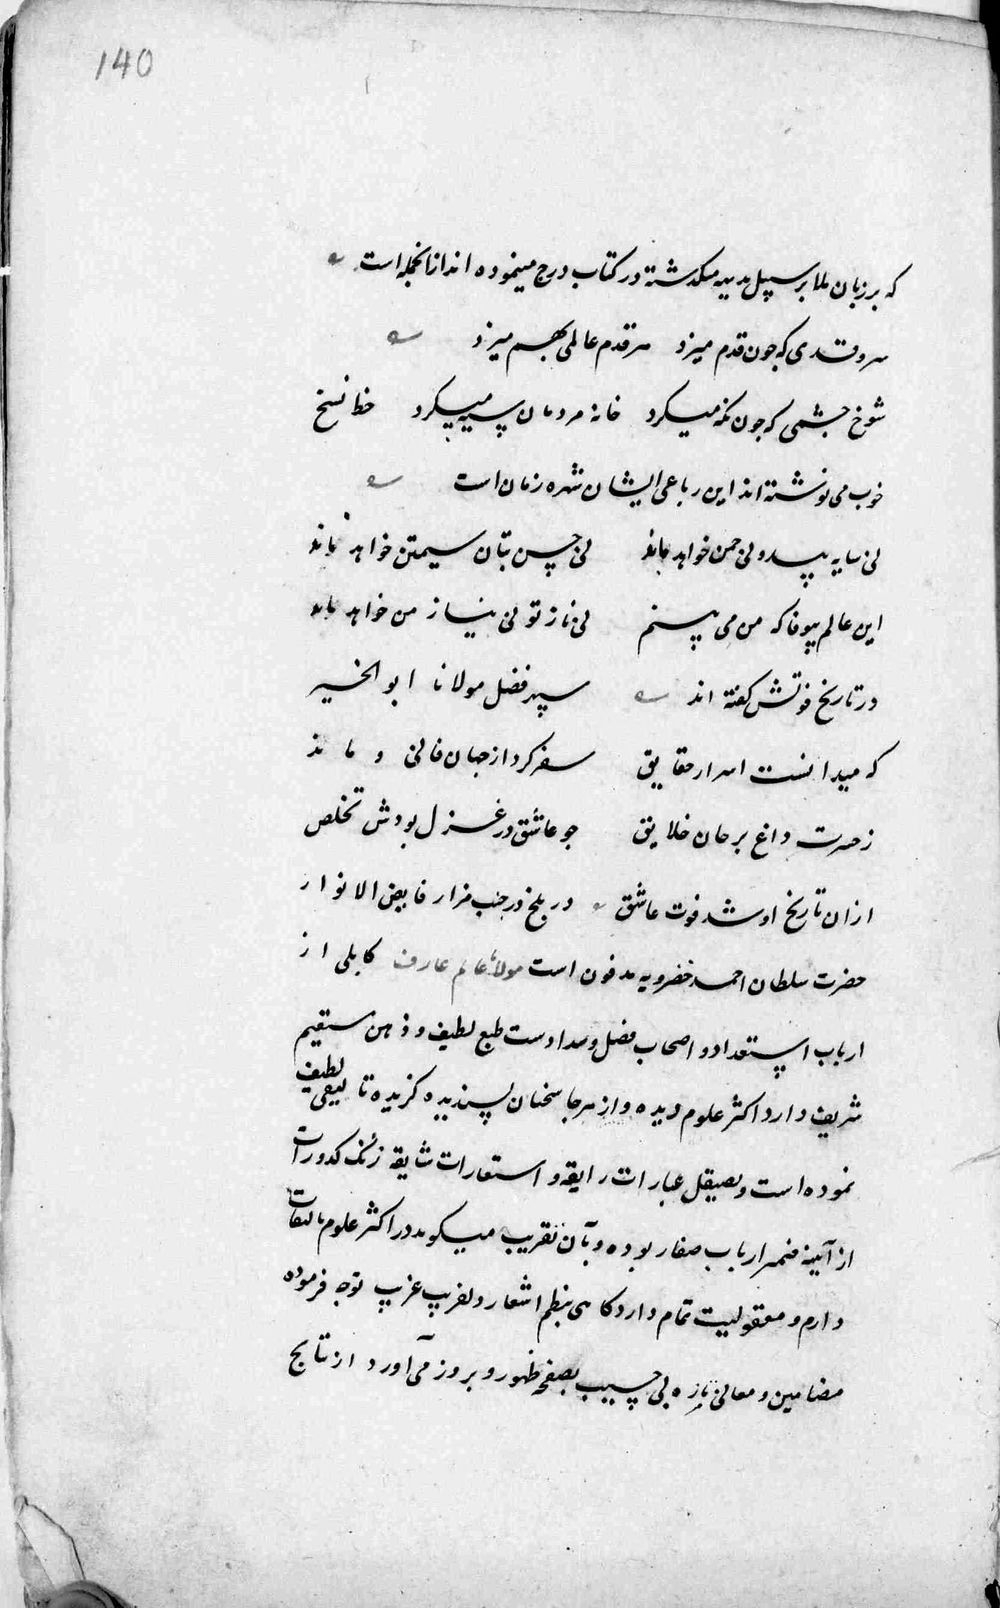 140
که بر زبان ملا بر سبیل بدیهه میکذشته در کتاب درج مینموده اند ازانجمله است
سروقدی که چون قدم میزد هر قدم عالمی بهم میزد
شوخ چشمی که چون نکه میکرد خانه مردمان سیه میکرد خط نسخ
خوب می نوشته اند این رباعی ایشان شهره زمان است
نی سایه بید و نی چمن خواهد ماند نی حسن بتان سیمتن خواهد ماند
این عالم بیوفا که من می بینم نی ناز تو نی نیاز من خواهد ماند
در تاریخ فوتش کفته اند سپهر فضل مولانا ابو الخیر
که میدانست اسرار حقایق سفر کرد از جهان فانی و ماند
ز حسرت داغ بر جان خلایق چو عاشق در غزل بودش تخلص
ازان تاریخ او شد فوت عاشق در بلخ در جنب مزار فایض الانوار
حضرت سلطان احمد خضرویه مدفون است مولانا عالم عارف کابلی از
ارباب استعداد و اصحاب فضل و سداد است طبع لطیف و ذهن مستقیم
شریف دارد اکثر علوم دیده و از هر جا سخنان پسندیده کزیده تالیفی لطیف
نموده است و بصیقل عبارات رایقه و استعارات شایقه زنک کدورات
از آیینه ضمیر ارباب صفا ربوده و بآن تقریب میکوید در اکثر علوم تالیفات
دارم و معقولیت تمام دارد کاهی بنظم اشعار دلفریب غریب توجه فرموده
مضامین و معانی تازه بی حسیب بصفحه ظهور و بروز می آورد از نتایج